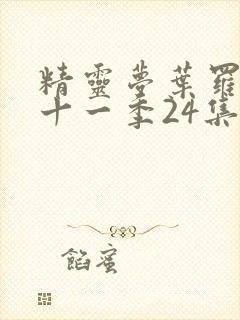 精靈夢葉羅
十一季24集
餡蜜